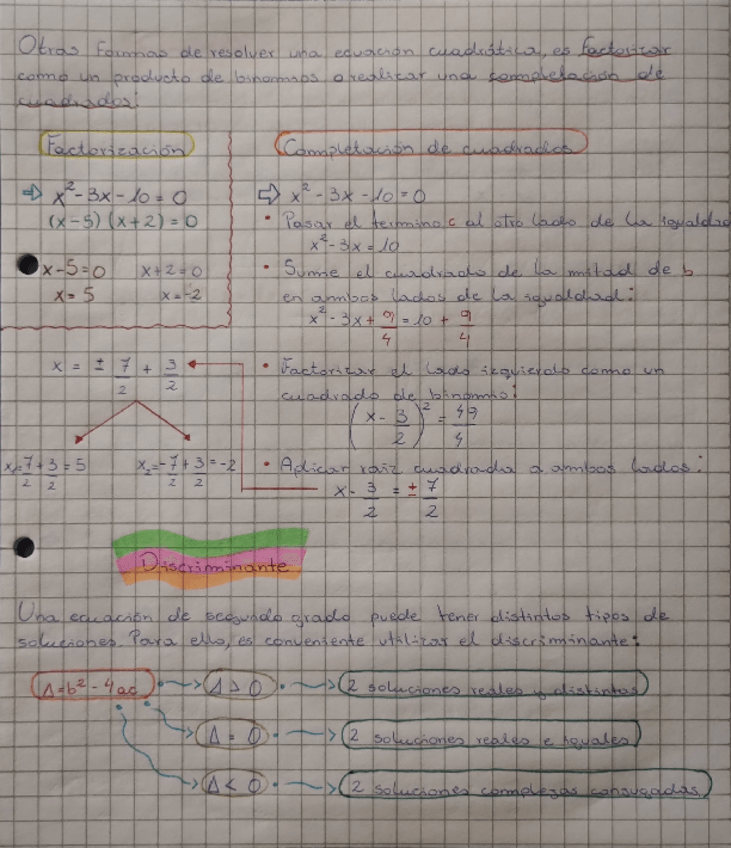 Otras Formas de resolver una ecuación cuadrática, es factorizar
como un producto de binomios o realizar una completación de
cuadrados:
Factorización
⇒ x² - 3x - 10 = 0
(x-5)(x+2) = 0
x-5=0 x+2=0
x=5 x=-2
Completación de cuadrados
⇒ x² - 3x - 10 = 0
• Pasar el termino c al otro lado de la igualdad
x² - 3x = 10
• Sume el cuadrado de la mitad de b
en ambos lados de la igualdad:
x² - 3x + 9/4 = 10 + 9/4
• Factorizar el lado izquierdo como un
cuadrado de binomio:
(x - 3/2)² = 49/4
• Aplicar raiz cuadrada a ambos lados:
x - 3/2 = ± 7/2
x = ± 7/2 + 3/2
x₁ = 7/2 + 3/2 = 5 x₂ = -7/2 + 3/2 = -2
Discriminante
Una ecuación de segundo grado puede tener distintos tipos de
soluciones. Para ello, es conveniente utilizar el discriminante:
Δ = b² - 4ac Δ > 0 2 soluciones reales y distintas
Δ = 0 2 soluciones reales e iguales
Δ < 0 2 soluciones complejas conjugadas